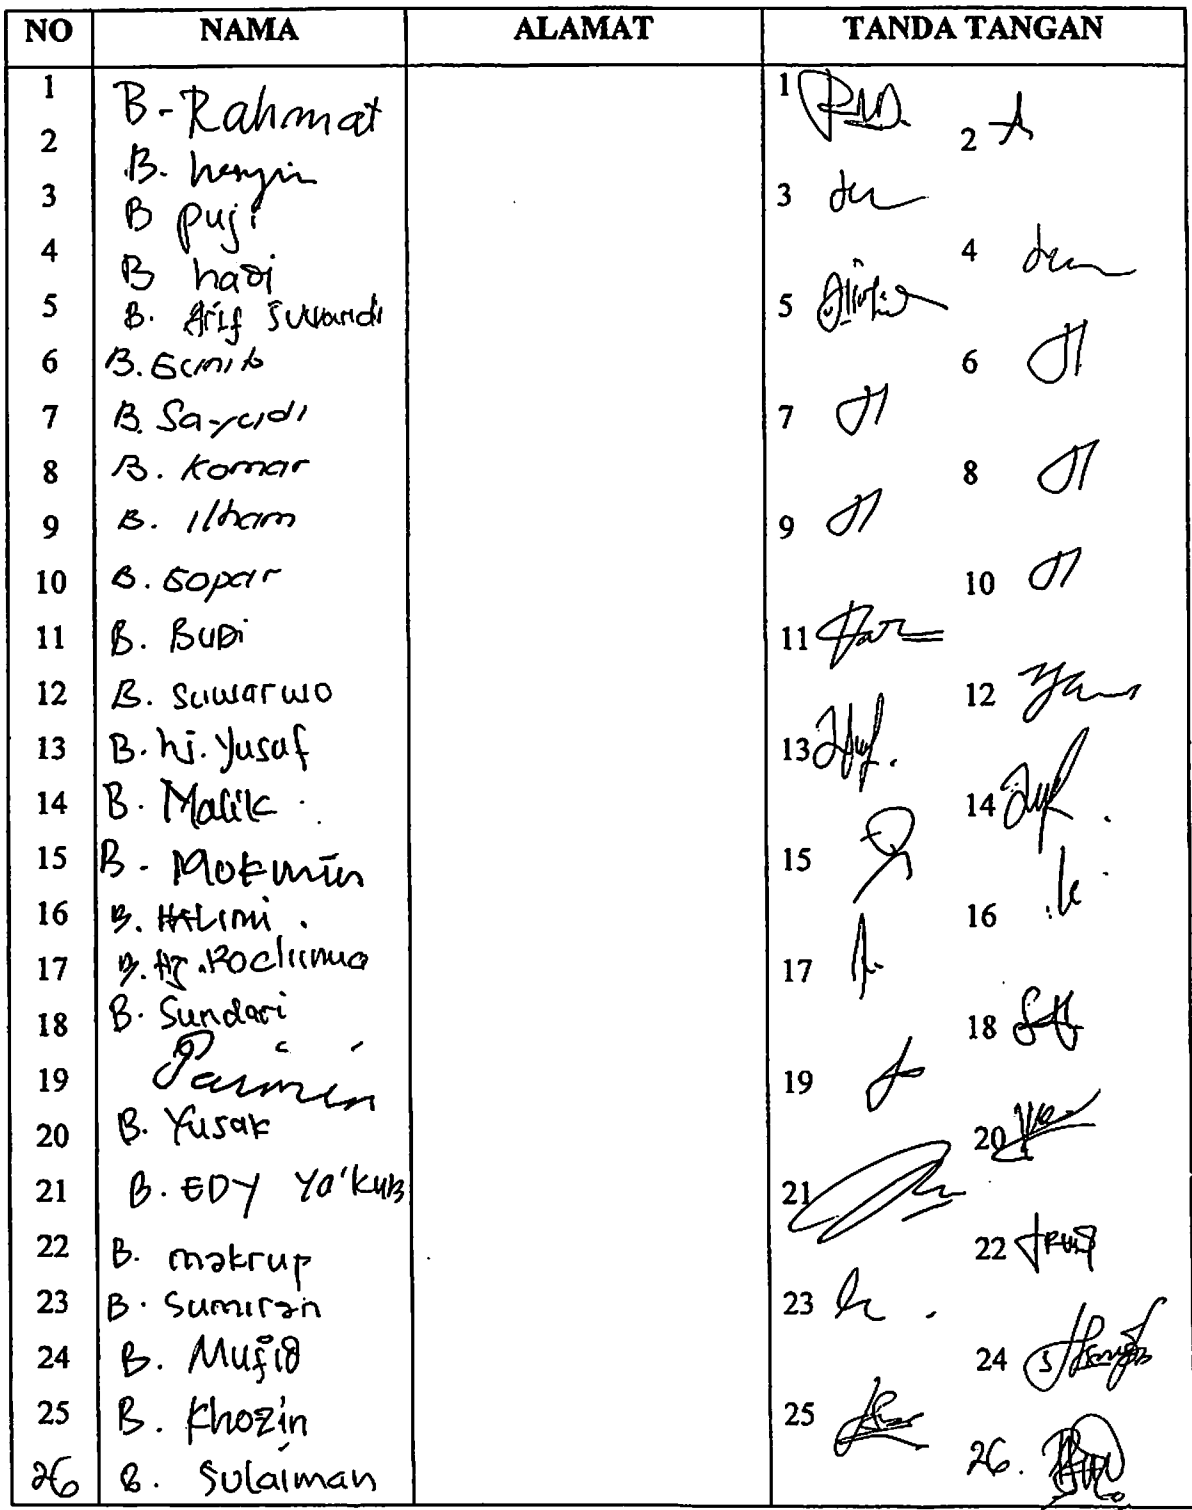 NO NAMA ALAMAT TANDA TANGAN
1 B-Rahmat 1
2 B. 2
3 B puji 3
4 B hadi 4
5 B. Arif Suwandi 5
6 B. 6
7 B. Sayidi 7
8 B. Komar 8
9 B. Ilham 9
10 B. Gopar 10
11 B. BUDi 11
12 B. Suwarwo 12
13 B. hj. Yusaf 13
14 B. Malik . 14
15 B. Mokmin 15
16 B. HALIMI . 16
17 B. Hj. 17
18 B. Sundari 18
19 Paimin 19
20 B. Yusak 20
21 B. EDY Ya'kuB 21
22 B. makrup 22
23 B. Sumiran 23
24 B. Mufid 24
25 B. Khozin 25
26 B. Sulaiman 26.